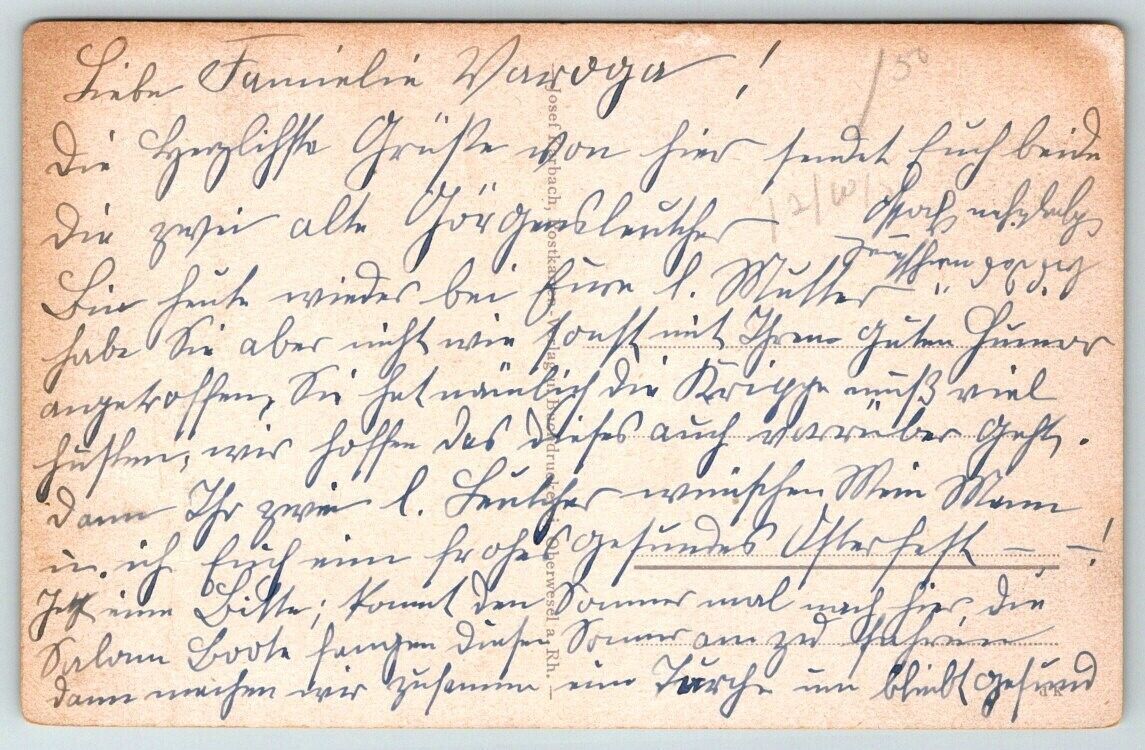 Liebe Familie Varoga!
Die Herzlichste Grüße von hier sendet Euch beide
die zwei alte Görgensleutcher
Bin heute wieder bei Eure l. Mutter
habe Sie aber nicht wie sonst mit Ihren guten Humor
angetroffen, Sie hat nämlich die Krippe muß viel
husten, wir hoffen das dieses auch vorrüber geht.
dann Ihr zwei l. Leutcher wünschen Mein Mann
u. ich Euch ein frohes gesundes Osterfest – –!
Jetz eine Bitte; kommt den Sommer mal nach hier die
Salonn Boote fangen diesen Sommer an zu fahren
dann machen wir zusamen ein Turche un bleibt gesund
1 50
Josef Karbach, Postkarten-Verlag u. Buchdruckerei, Oberwesel a. Rh. —